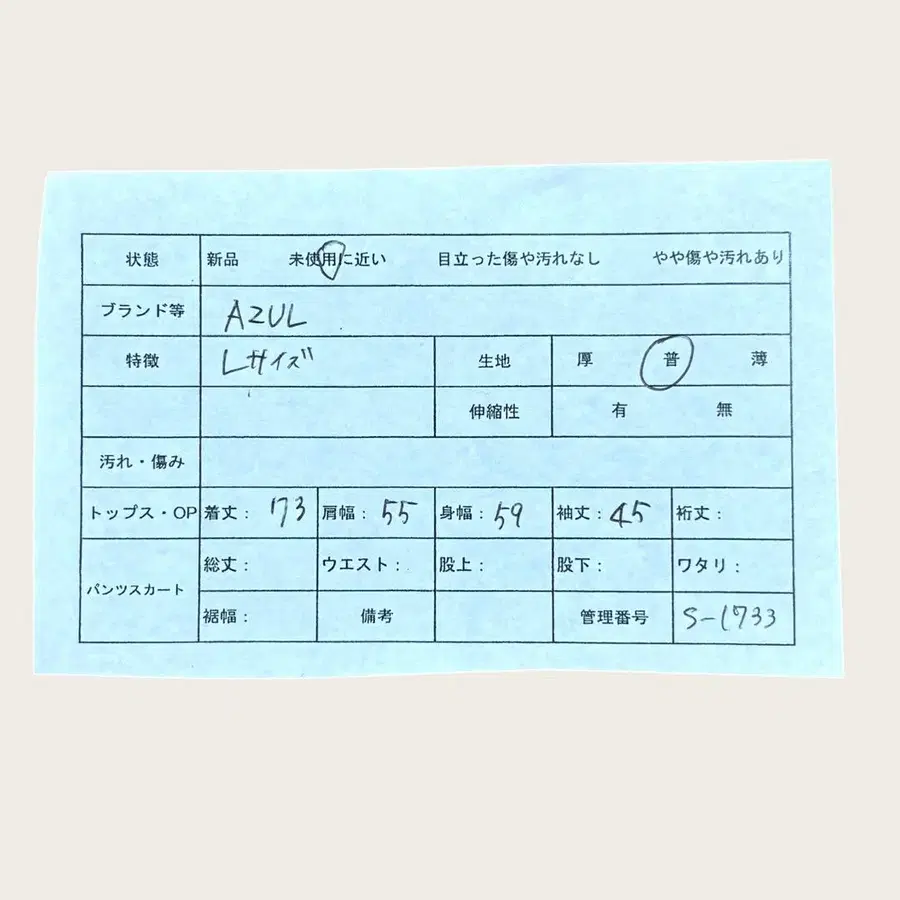 状態 新品 未使用に近い 目立った傷や汚れなし やや傷や汚れあり
ブランド等 AZUL
特徴 Lサイズ 生地 厚 普 薄
伸縮性 有 無
汚れ・傷み
トップス・OP 着丈: 173 肩幅: 55 身幅: 59 袖丈: 45 裄丈:
パンツスカート 総丈: ウエスト: 股上: 股下: ワタリ:
裾幅: 備考 管理番号 S-1733